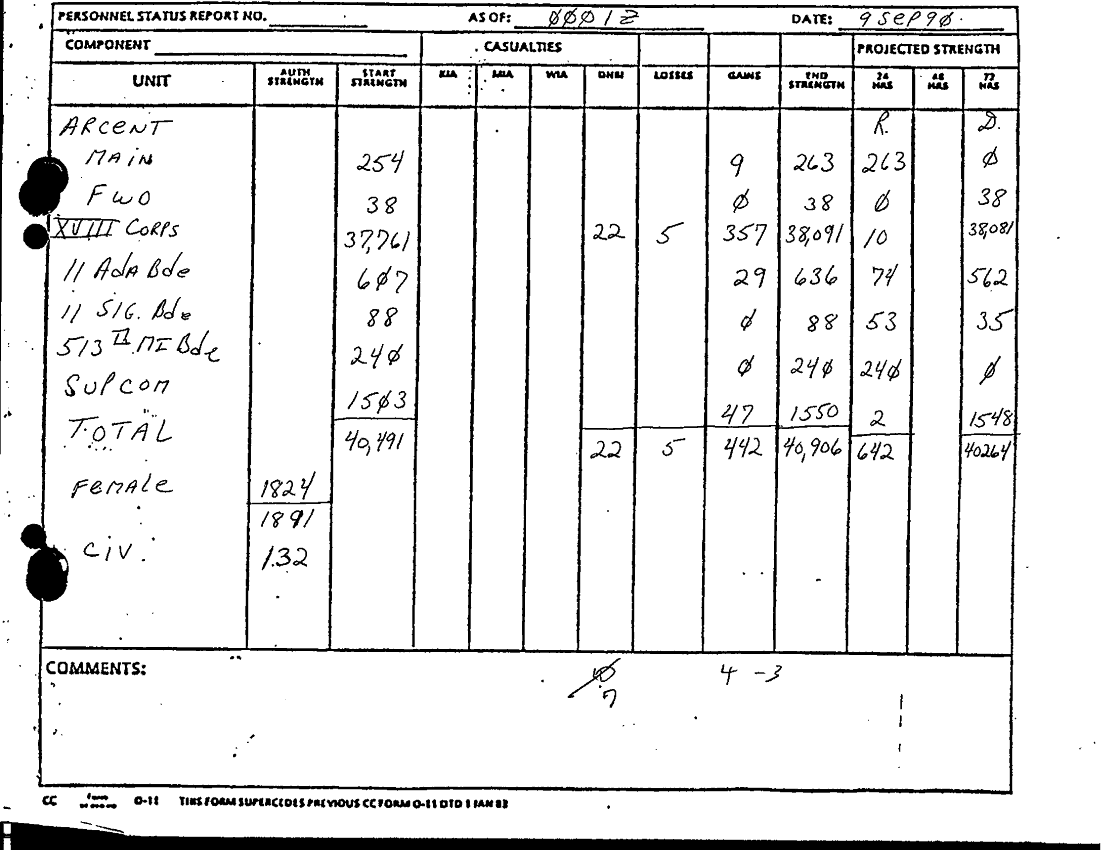 PERSONNEL STATUS REPORT NO. AS OF: ØØØ1Z DATE: 9 SEP 9Ø
COMPONENT CASUALTIES PROJECTED STRENGTH
UNIT AUTH STRENGTH START STRENGTH KIA MIA WIA DNBI LOSSES GAINS END STRENGTH 24 HRS 48 HRS 72 HRS
ARCENT R. D.
MAIN 254 9 263 263 Ø
FWD 38 Ø 38 Ø 38
XVIII CORPS 37,761 22 5 357 38,091 10 38,081
11 AdA Bde 6Ø7 29 636 74 562
11 SIG. Bde 88 Ø 88 53 35
513 MI Bde 24Ø Ø 24Ø 24Ø Ø
SUPCOM 15Ø3 47 1550 2 1548
TOTAL 40,491 22 5 442 40,906 642 40264
FEMALE 1824
1891
CIV. 132
COMMENTS: Ø 4 -3
7
CC O-11 THIS FORM SUPERCEDES PREVIOUS CC FORM O-11 DTD 1 JAN 83